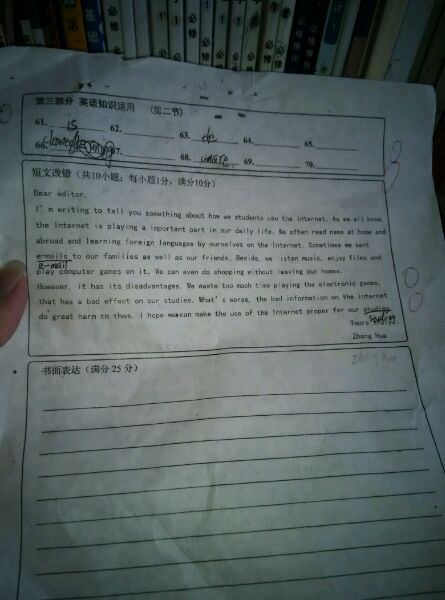 必修
基础
必修
必修
必修
第三部分 英语知识运用 (第二节)
61. is 62. 63. the 64. 65.
66. 67. 68. 69. 70.
短文改错(共10小题;每小题1分,满分10分)
Dear editor,
I'm writing to tell you something about how we students use the internet. As we all know,
the Internet is playing a important part in our daily life. We often read news at home and
abroad and learning foreign languages by ourselves on the Internet. Sometimes we sent
e-mails to our families as well as our friends. Beside, we listen music, enjoy films and
e-mail
play computer games on it. We can even do shopping without leaving our homes.
However, it has its disadvantages. We waste too much time playing the electronic games,
that has a bad effect on our studies. What's worse, the bad information on the internet
do great harm to them. I hope we can make the use of the Internet proper for our studies.
Yours truly,
Zhang Hua
Zhang Hua
书面表达(满分 25 分)